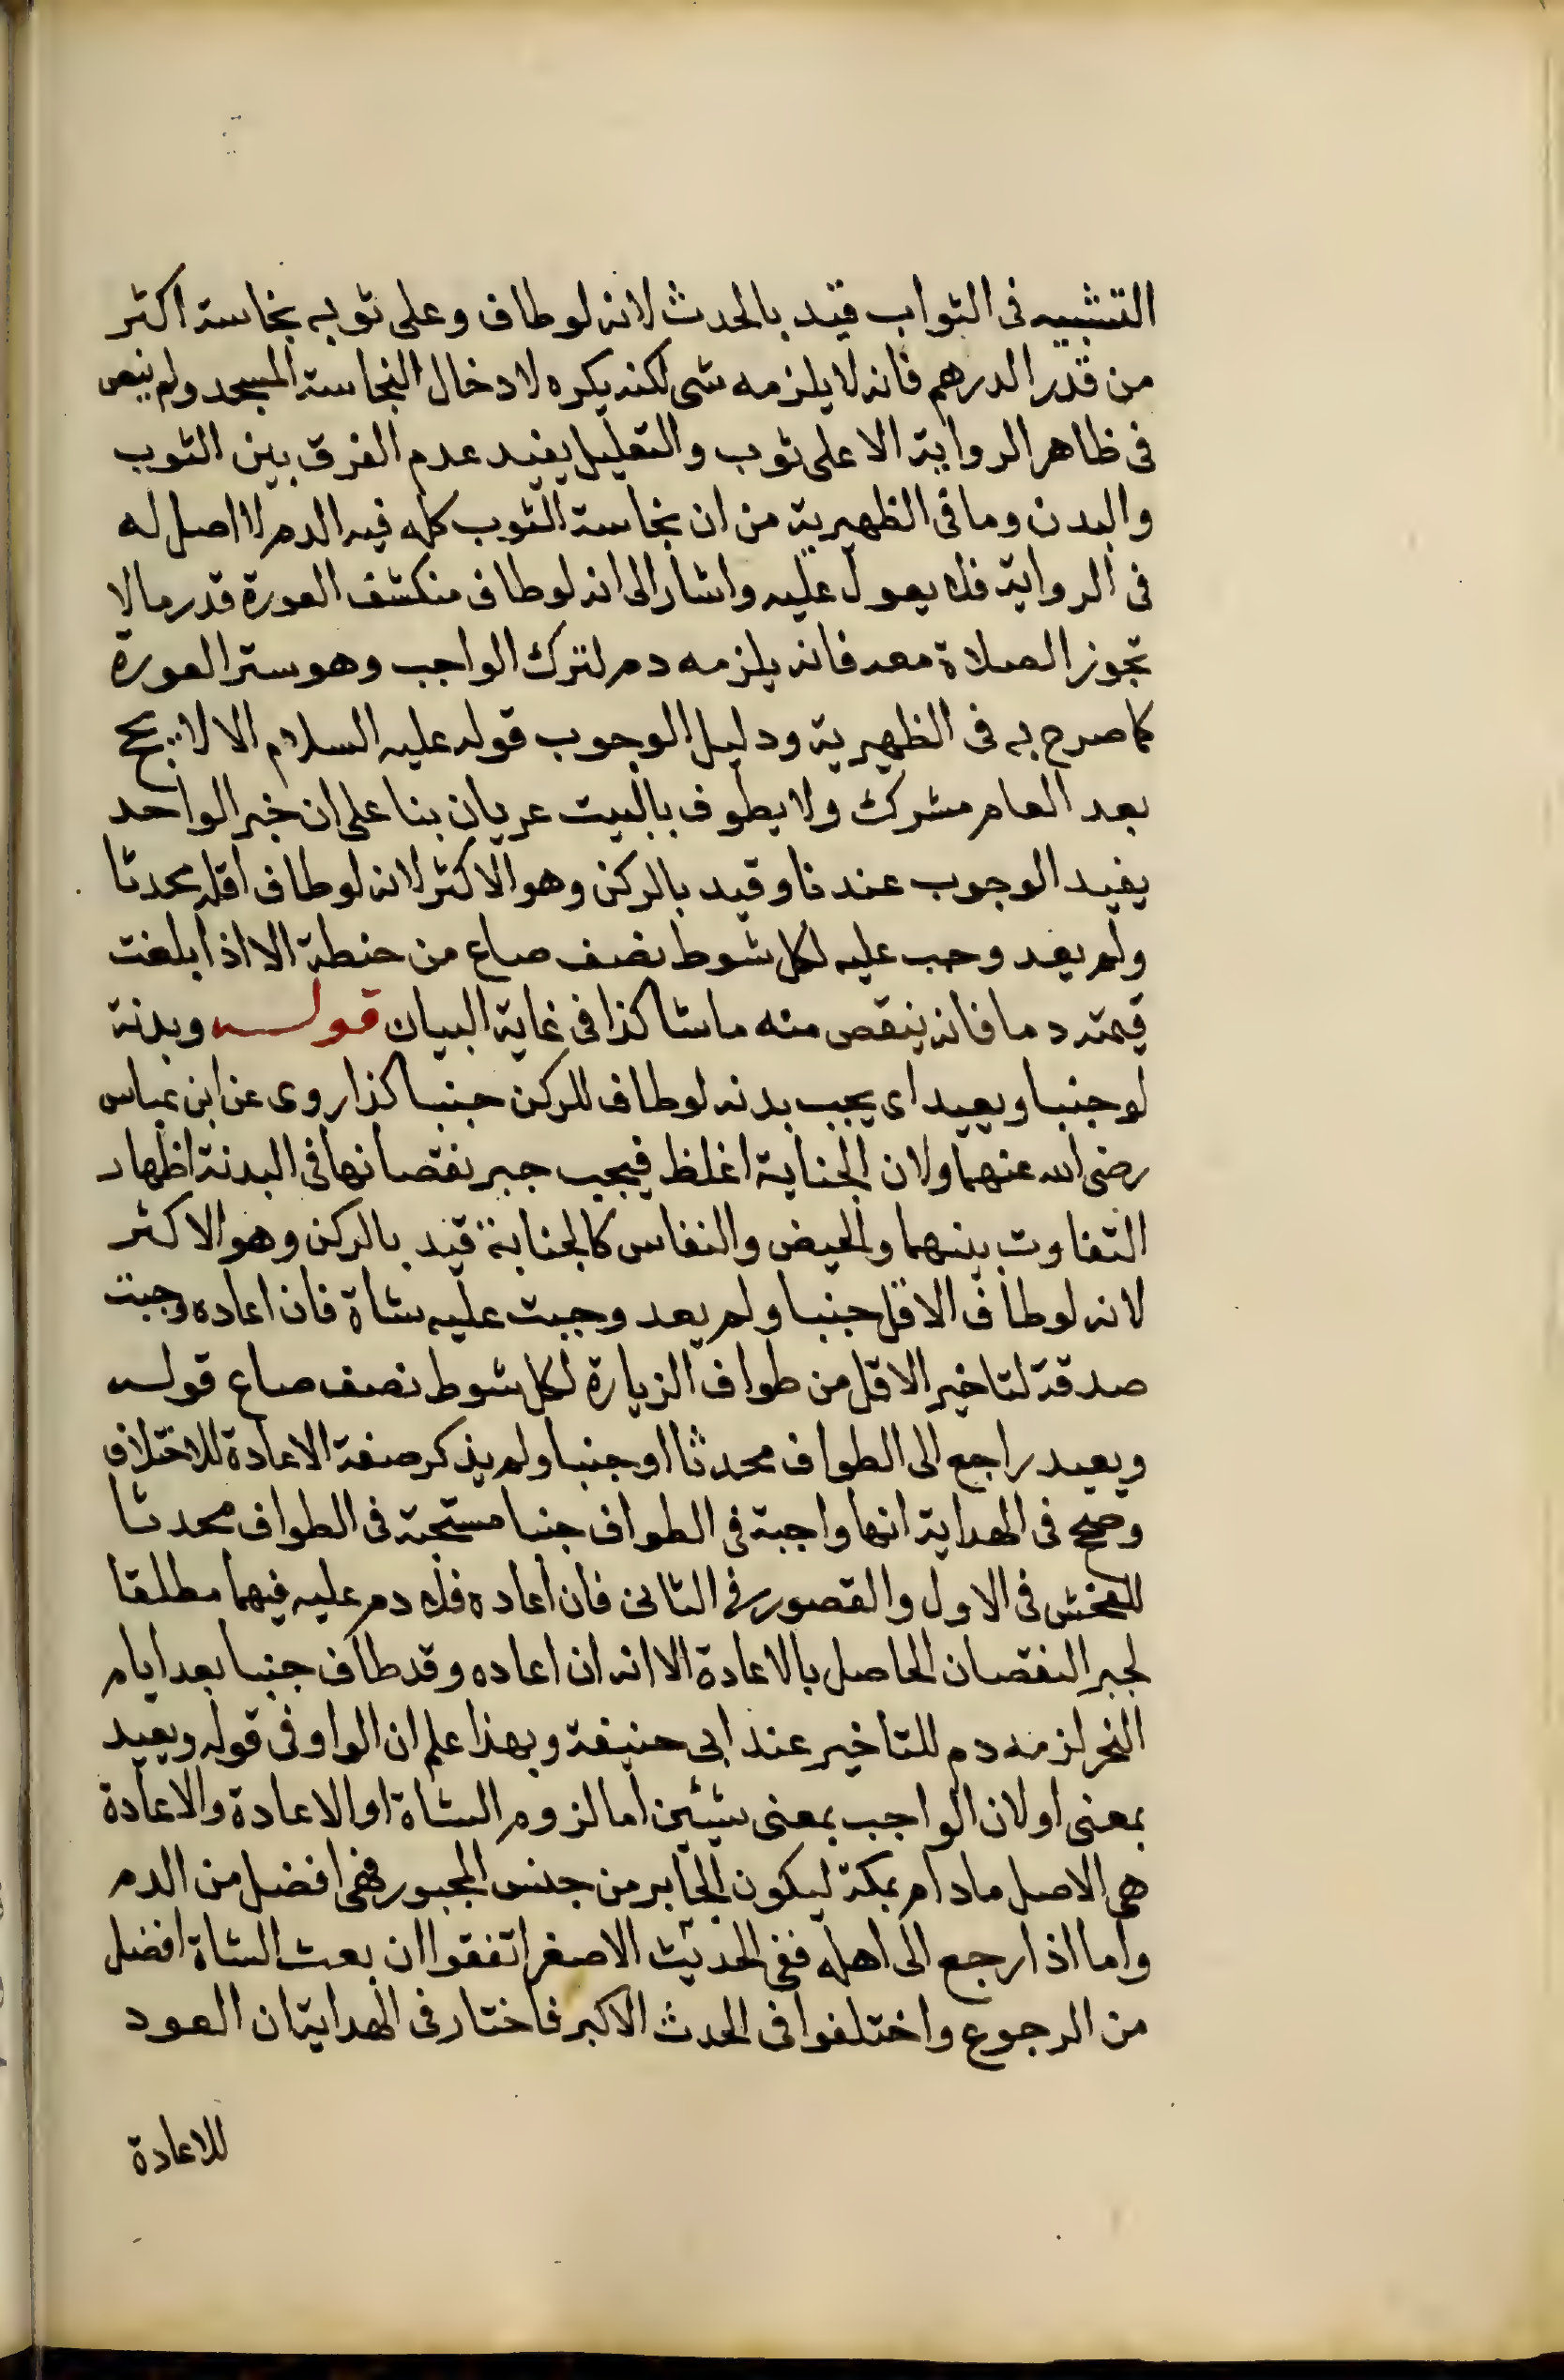 التشبيه فى الثواب قيد بالحدث لانه لو طاف وعلى ثوبه نجاسة اكثر
من قدر الدرهم فانه لا يلزمه شى لكنه يكره لادخال النجاسة المسجد ولم ينص
فى ظاهر الرواية الا على ثوب والتعليل يفيد عدم الفرق بين الثوب
والبدن وما فى الظهيرية من ان نجاسة الثوب كله فيه الدم لا اصل له
فى الرواية فلا يعول عليه واشار الى انه لو طاف منكشف العورة قدر ما لا
تجوز الصلاة معه فانه يلزمه دم لترك الواجب وهو ستر العورة
كما صرح به فى الظهيرية ودليل الوجوب قوله عليه السلام الا لا يحج
بعد العام مشرك ولا يطوف بالبيت عريان بنا على ان خبر الواحد
يفيد الوجوب عندنا وقيد بالركن وهو الاكثر لانه لو طاف اقله محدثا
ولم يعد وجب عليه لكل شوط نصف صاع من حنطة الا اذا بلغت
قيمته دما فانه ينقص منه ماشا كذا فى غاية البيان قوله وبدنة
لو جنبا ويعيد اى يجب بدنه لو طاف للركن جنبا كذا روى عن ابن عباس
رضى الله عنهما ولان الجناية اغلظ فيجب جبر نقصانها فى البدنة اظهار
التفاوت بينهما والحيض والنفاس كالجنابة قيد بالركن وهو الاكثر
لانه لو طاف الاقل جنبا ولم يعد وجبت عليه شاة فان اعاده وجبت
صدقة لتاخير الاقل من طواف الزيارة لكل شوط نصف صاع قوله
ويعيد راجع الى الطواف محدثا او جنبا ولم يذكر صفة الاعادة للاختلاف
وصحح فى الهداية انها واجبة فى الطواف جنبا مستحبة فى الطواف محدثا
للفحش فى الاول والقصور فى الثانى فان اعاده فلا دم عليه فيهما مطلقا
لجبر النقصان الحاصل بالاعادة الا انه ان اعاده وقد طاف جنبا بعد ايام
النحر لزمه دم للتاخير عند ابى حنيفة وبهذا علم ان الواو فى قوله ويعيد
بمعنى او لان الواجب بمعنى شيئين اما لزوم الشاة او الاعادة والاعادة
هى الاصل مادام بمكة ليكون الجابر من جنس المجبور فهى افضل من الدم
واما اذا رجع الى اهله ففى الحديث الاصغر اتفقوا ان بعث الشاة افضل
من الرجوع واختلفوا فى الحدث الاكبر فاختار فى الهداية ان العود
للاعادة